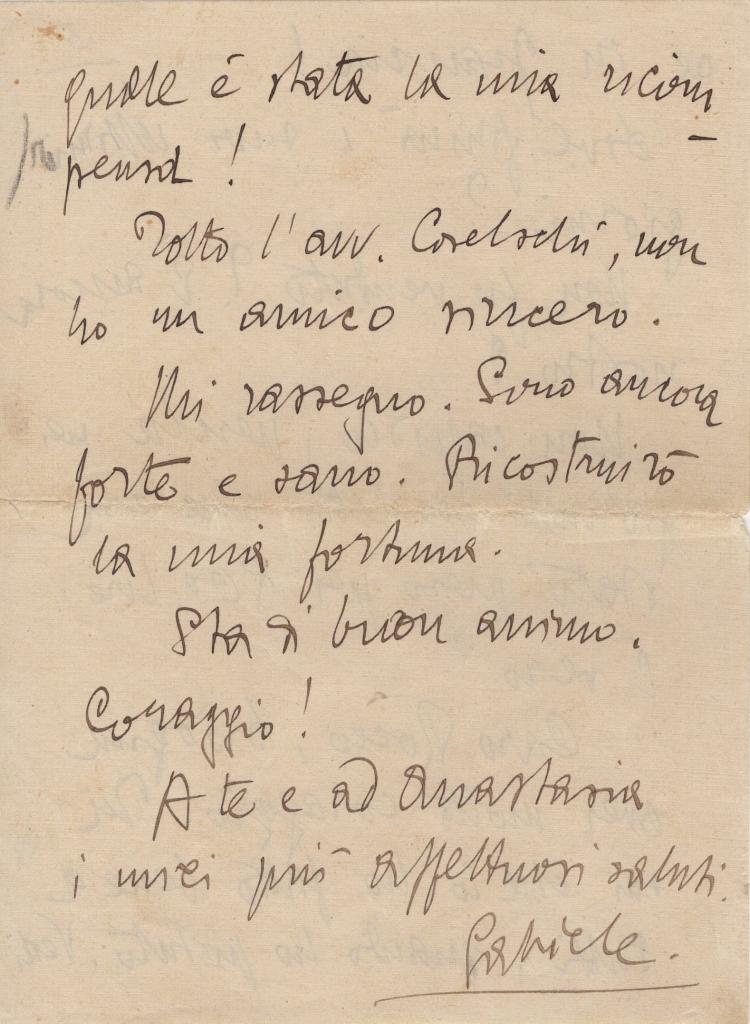 quale è stata la mia ricom-
pensa!
Tolto l'avv. Coselschi, non
ho un amico sincero.
Mi rassegno. Sono ancora
forte e sano. Ricostruirò
la mia fortuna.
Sta di buon animo.
Coraggio!
A te e ad Anastasia
i miei più affettuosi saluti.
Gabriele.